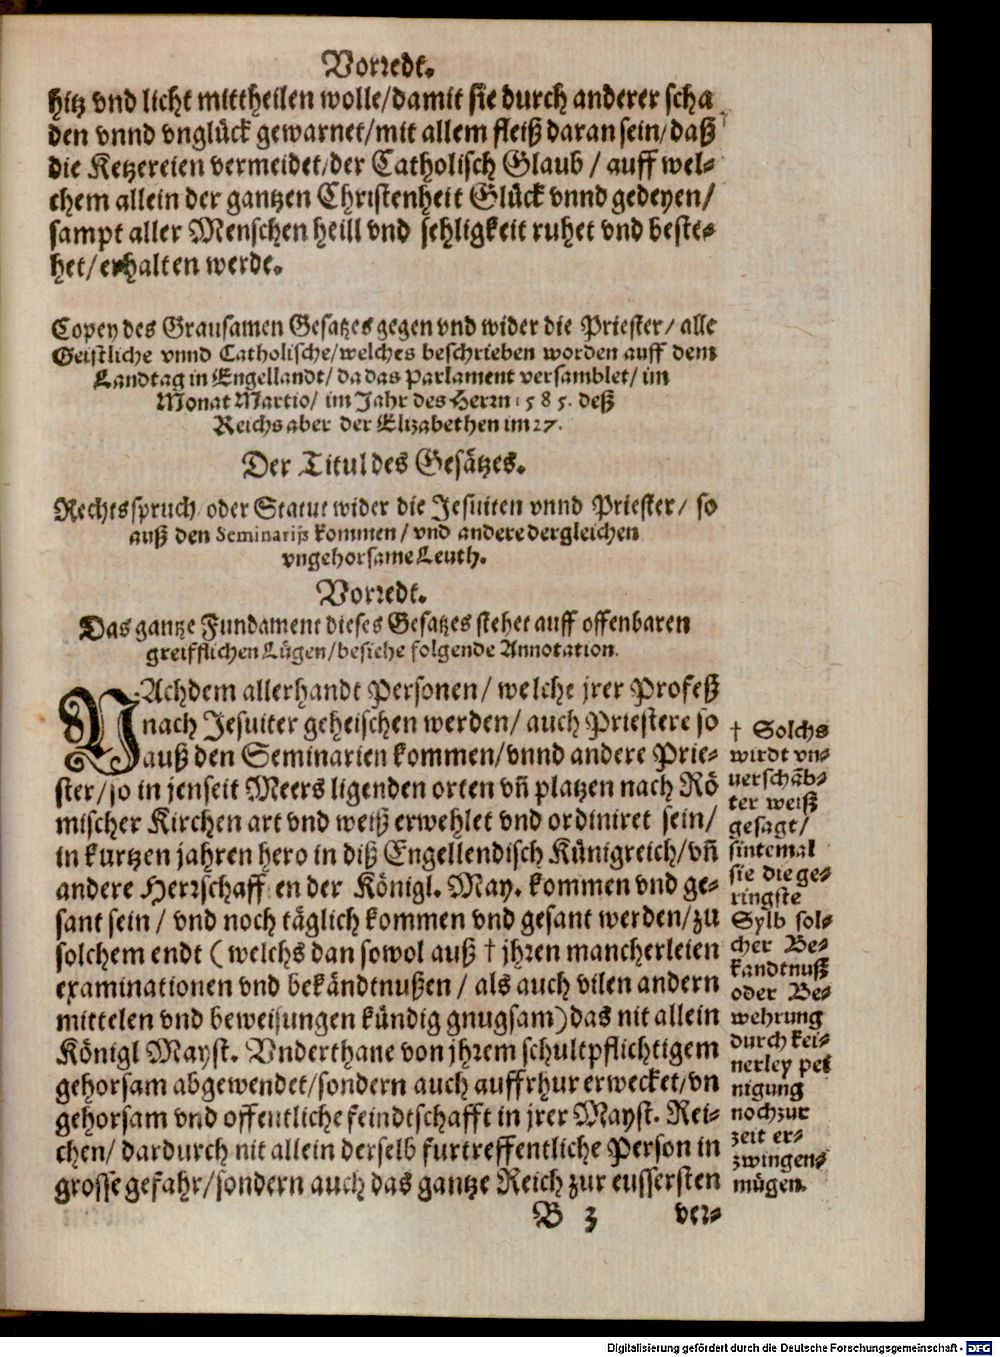 Vorredt.
hitz vnd licht mittheilen wolle/damit sie durch anderer scha
den vnnd vnglück gewarnet/mit allem fleiß daran sein/daß
die Ketzereien vermeidet/der Catholisch Glaub / auff wel-
chem allein der gantzen Christenheit Glück vnnd gedeyen/
sampt aller Menschen heill vnd sehligkeit ruhet vnd beste-
het/erhalten werde.
Copey des Grausamen Gesatzes gegen vnd wider die Priester/ alle
Geistliche vnnd Catholische/welches beschrieben worden auff dem
Landtag in Engellandt/ da das Parlament versamblet/ im
Monat Martio/ im Jahr des Herrn 1585. deß
Reichs aber der Elizabethen im 27.
Der Titul des Gesätzes.
Rechtsspruch/oder Statut wider die Jesuiten vnnd Priester/ so
auß den Seminarijs kommen/ vnd andere dergleichen
vngehorsame Leuth.
Vorredt.
Das gantze Fundament dieses Gesatzes stehet auff offenbaren
greifflichen Lügen/besiehe folgende Annotation.
NAchdem allerhandt Personen/ welche jrer Profeß
nach Jesuiter geheischen werden/ auch Priestere so
auß den Seminarien kommen/vnnd andere Prie-
ster/so in jenseit Meers ligenden orten vñ platzen nach Rö
mischer Kirchen art vnd weiß erwehlet vnd ordiniret sein/
in kurtzen jahren hero in diß Engellendisch Künigreich/vñ
andere Herrschafften der Königl. May. kommen vnd ge-
sant sein / vnd noch täglich kommen vnd gesant werden/zu
solchem endt (welchs dan sowol auß † jhren mancherleien
examinationen vnd bekändtnußen/ als auch vilen andern
mittelen vnd beweisungen kündig gnugsam) das nit allein
Königl Mayst. Vnderthane von jhrem schultpflichtigem
gehorsam abgewendet/sondern auch auffrhur erwecket/vn
gehorsam vnd offentliche feindtschafft in jrer Mayst. Rei-
chen/ dardurch nit allein derselb furtreffentliche Person in
grosse gefahr/sondern auch das gantze Reich zur eussersten
† Solchs
wirdt vn-
verschäb-
ter weiß
gesagt/
sintemal
sie die ge-
ringste
Sylb sol-
cher Be-
kandtnuß
oder Be-
wehrung
durch kei-
nerley pei
nigung
noch zur
zeit er-
zwingen
mügen.
B 3 ver-
Digitalisierung gefördert durch die Deutsche Forschungsgemeinschaft - DFG